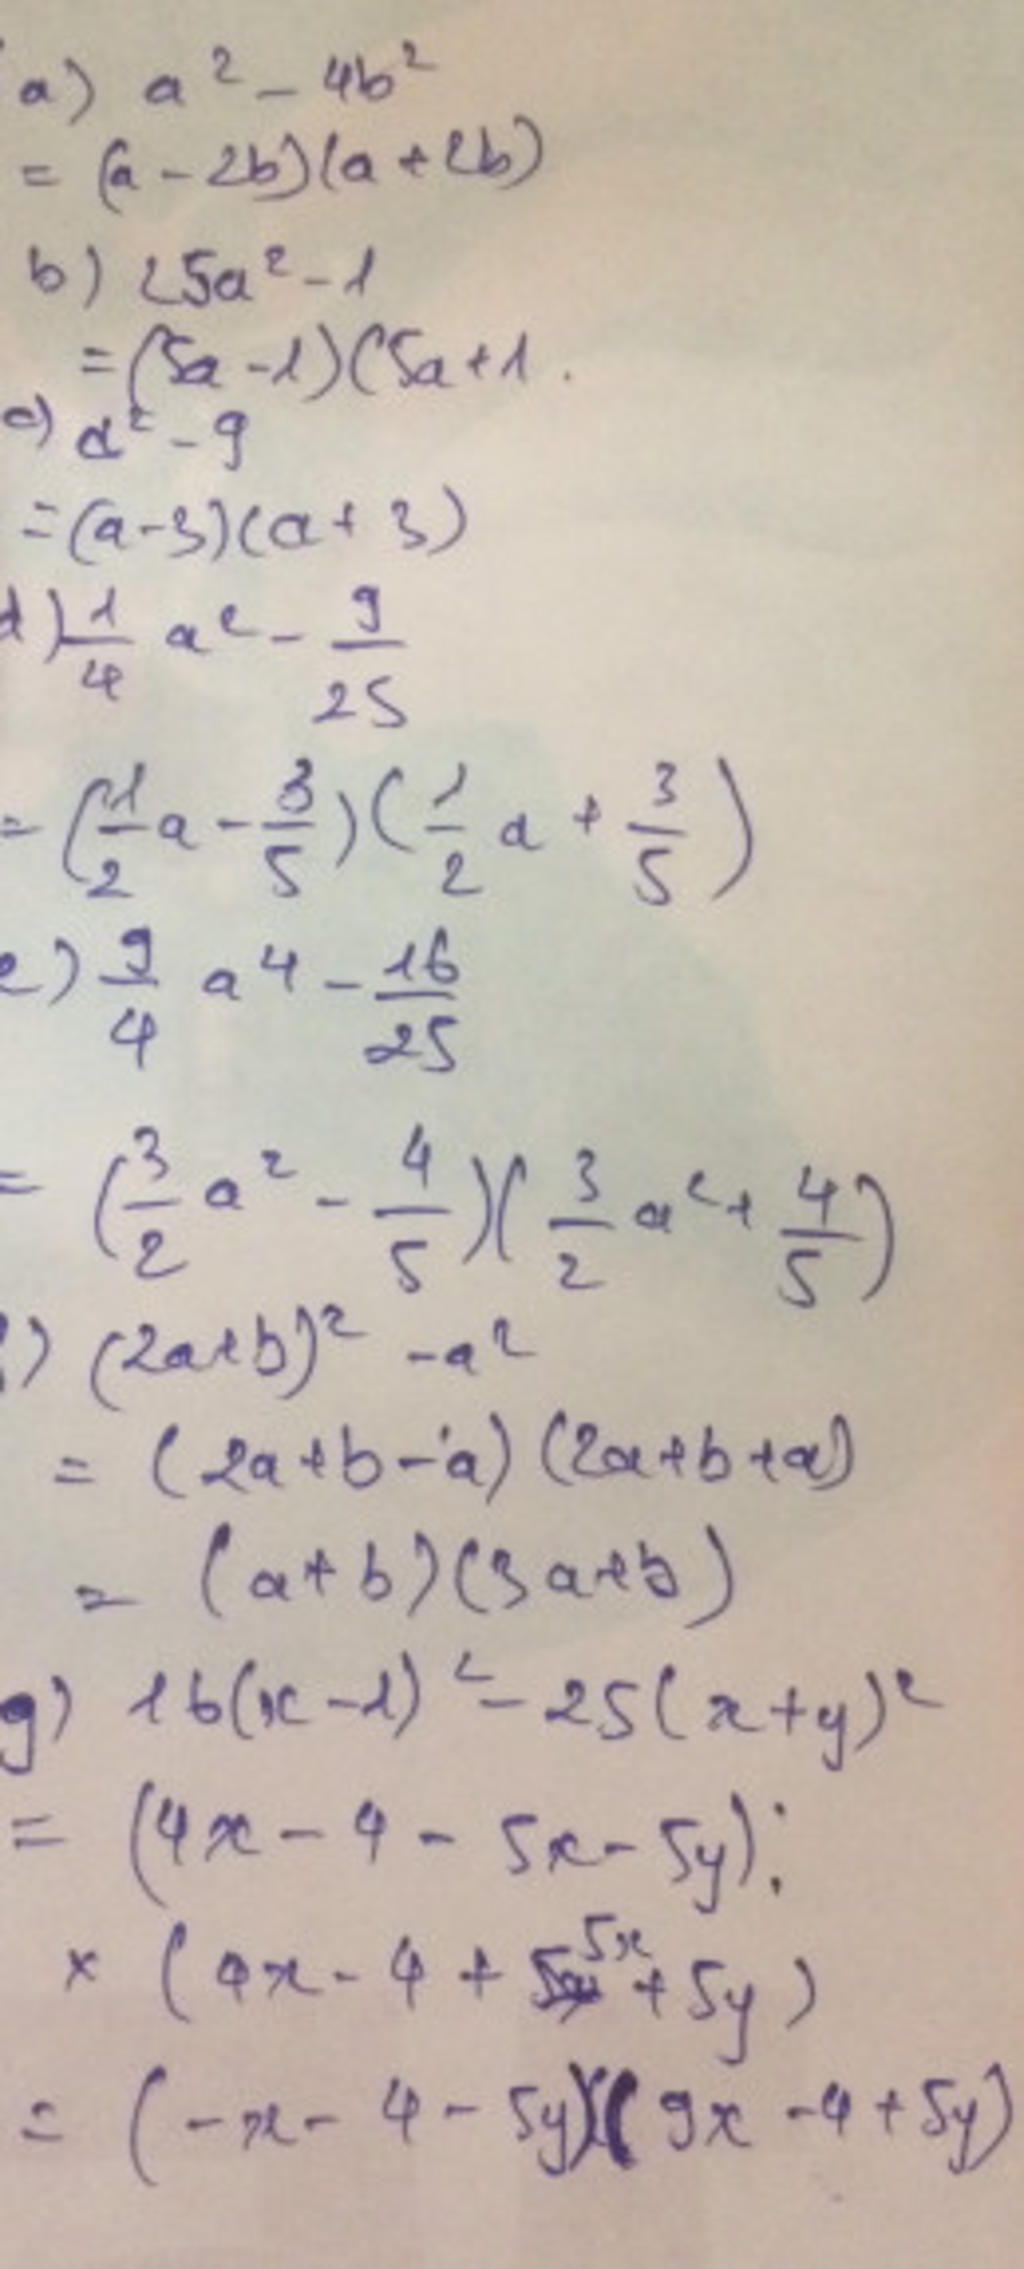 a) a² - 4b²
= (a - 2b)(a + 2b)
b) 25a² - 1
= (5a - 1)(5a + 1.
c) a² - 9
= (a - 3)(a + 3)
d) 1/4 a² - 9/25
= (1/2 a - 3/5)(1/2 a + 3/5)
e) 9/4 a⁴ - 16/25
= (3/2 a² - 4/5)(3/2 a² + 4/5)
) (2a+b)² - a²
= (2a+b-a)(2a+b+a)
= (a+b)(3a+b)
g) 16(x-1)² - 25(x+y)²
= (4x - 4 - 5x - 5y):
× (4x - 4 + 5x + 5y)
= (-x - 4 - 5y)(9x - 4 + 5y)